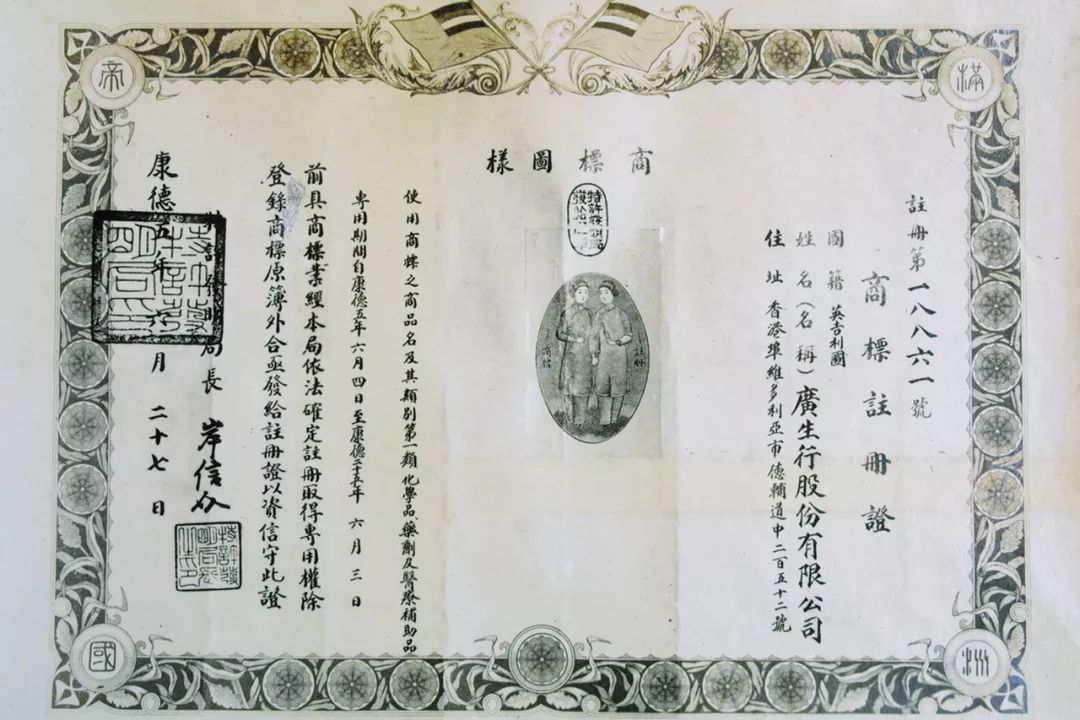 滿
洲
帝
國
註冊第一八八六一號
商標註冊證
國籍 英吉利國
姓名(名稱)廣生行股份有限公司
住址 香港埠維多利亞市德輔道中二百五十二號
商標圖樣
特許發明局
註冊
商標
使用商標之商品名及其類別第一類化學品藥劑及醫療補助品
專用期間自康德五年六月四日至康德二十五年六月三日
前具商標業經本局依法確定註冊取得專用權除
登錄商標原簿外合亟發給註冊證以資信守此證
局長 岸信介
康德五年六月二十七日